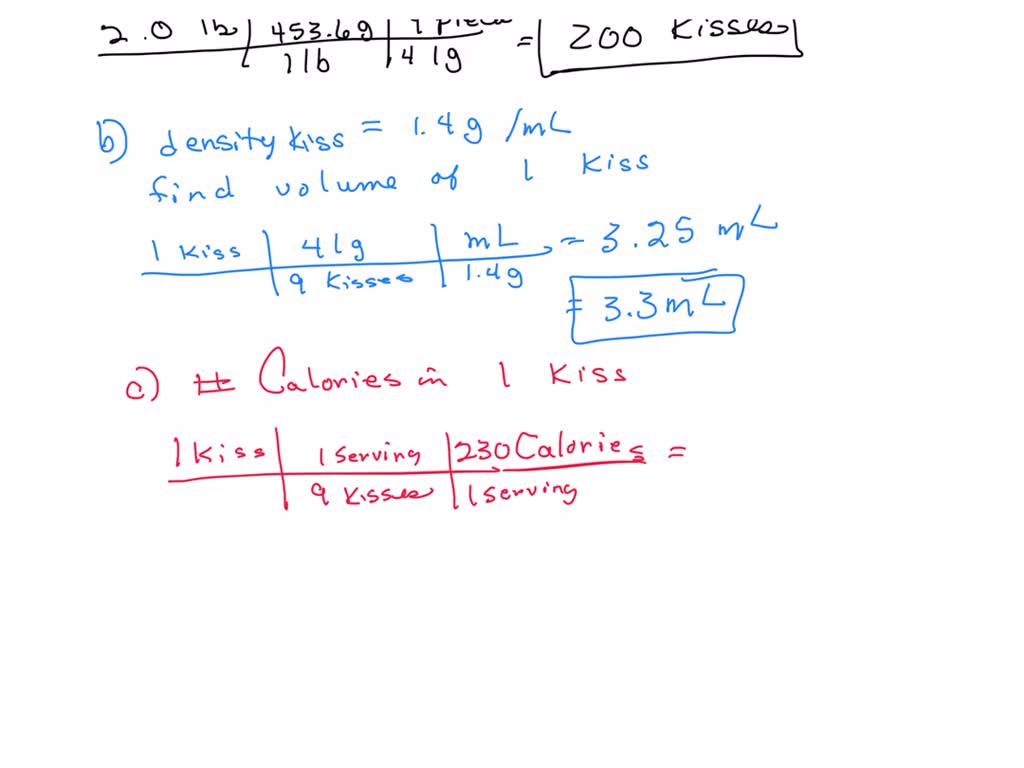 2.0 lb | 453.6g | = 200 Kisses
1 lb | 41g
b) density kiss = 1.4 g /mL
find volume of 1 kiss
1 kiss | 41g | mL = 3.25 mL
9 kisses | 1.4g
= 3.3 mL
c) # Calories in 1 Kiss
1 Kiss | 1 serving | 230 Calories =
9 Kisses | 1 serving